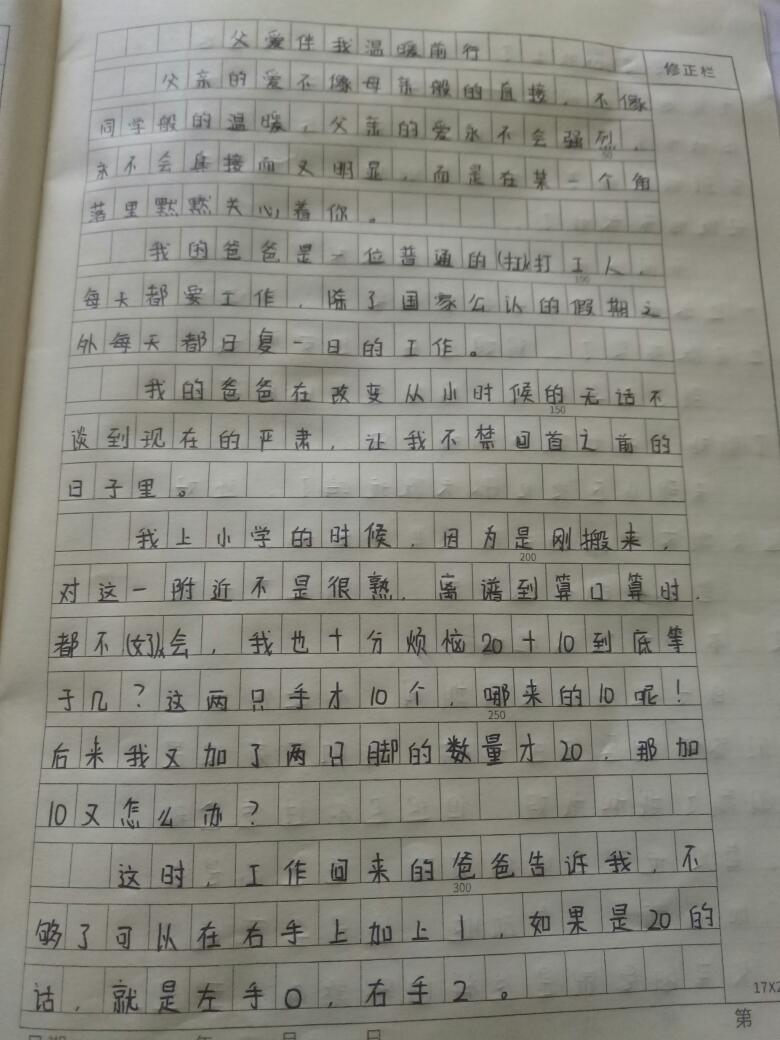 父爱伴我温暖前行
修正栏
父亲的爱不像母亲般的直接，不像
同学般的温暖，父亲的爱永不会强烈，
永不会直接而又明显，而是在某一个角
落里默默关心着你。
我的爸爸是一位普通的(扛)打工人，
100
每天都要工作，除了国家公认的假期之
外每天都日复一日的工作。
我的爸爸在改变从小时候的无话不
150
谈到现在的严肃，让我不禁回首之前的
日子里。
我上小学的时候，因为是刚搬来，
200
对这一附近不是很熟，离谱到算口算时，
都不(好)会，我也十分烦恼20十10到底等
于几？这两只手才10个，哪来的10呢！
250
后来我又加了两只脚的数量才20，那加
10又怎么办？
这时，工作回来的爸爸告诉我，不
300
够了可以在右手上加上1，如果是20的
话，就是左手0，右手2。
17X2
第
年 月 日